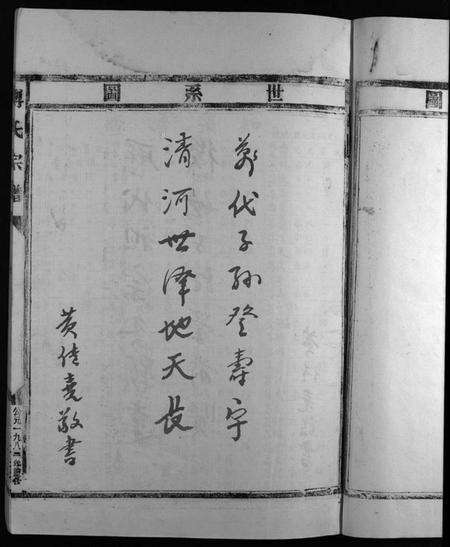 圖
世系圖
萬代子孫登壽宇
清河世澤地天長
黄佳堯敬書
氏宗譜
公元一九八